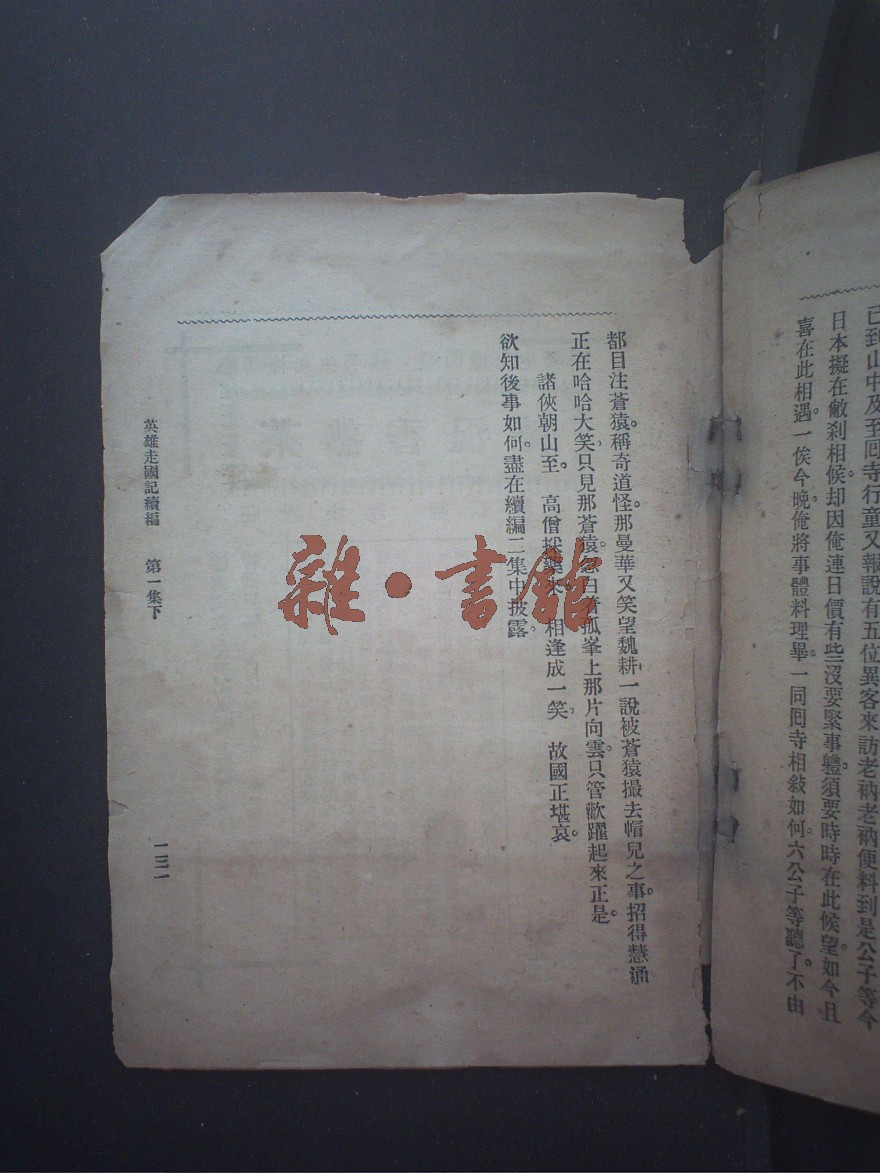 已到山中及至囘寺行童又報說有五位異客來訪老衲老衲便料到是公子等今
日本擬在敝刹相候却因俺連日價有些沒要緊事軆須要時時在此候望。如今且
喜在此相遇。一俟今晚俺將事體料理畢一同囘寺相敍如何。六公子等聽了不由
都目注蒼猿。稱奇道怪。那曼華又笑望魏耕一說被蒼猿撮去帽兒之事。招得慧通
正在哈哈大笑只見那蒼猿忽自着孤峯上那片向雲只管歡躍起來正是。
諸俠朝山至。 高僧採藥來 相逢成一笑 故國正堪哀。
欲知後事如何。盡在續編二集中披露
英雄走國記續編 第一集下 一三一
雜·書館